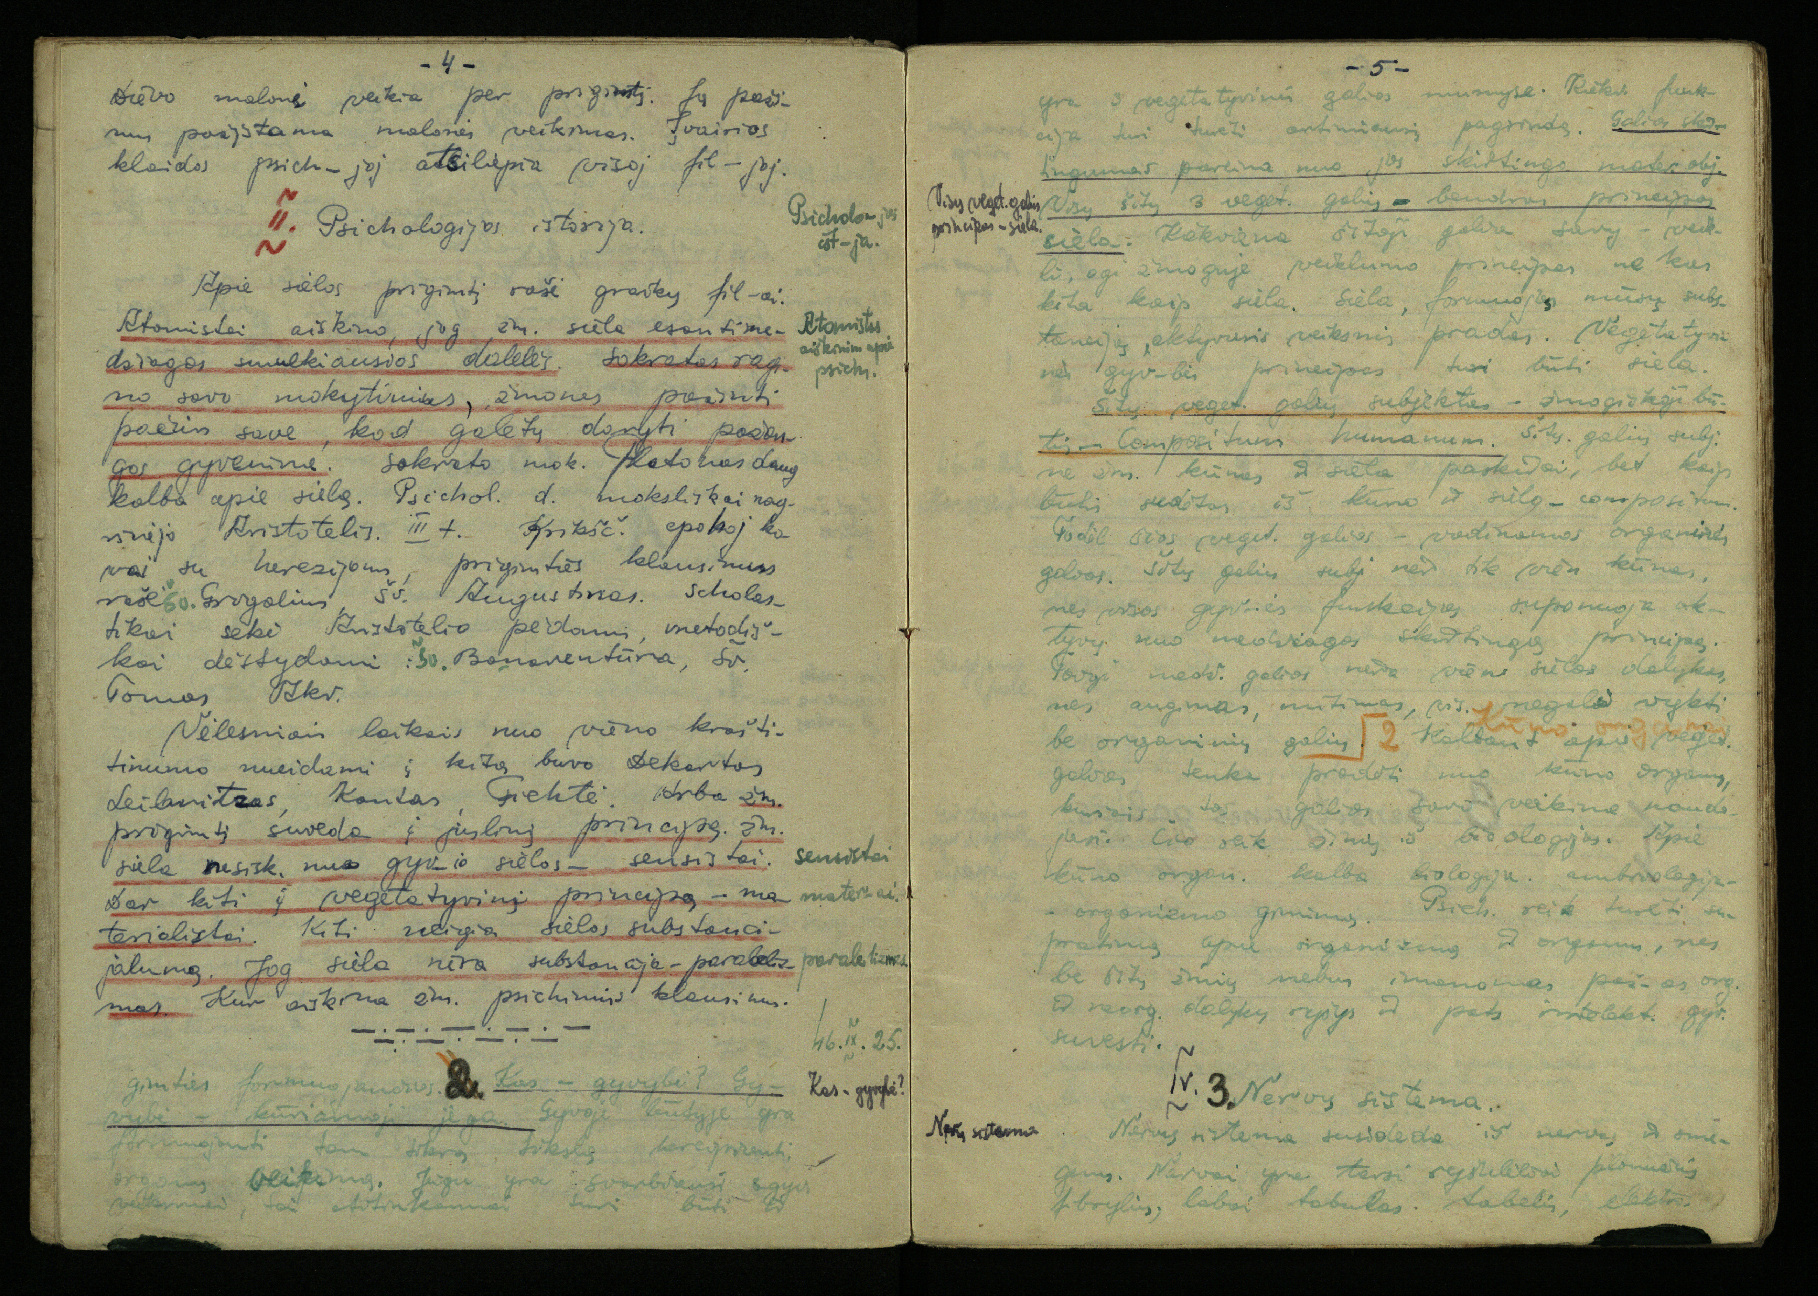 - 4 -
Dievo malonė veikia per prigimtį. Ją paži-
nus pažįstama malonės veikimas. Įvairios
klaidos psich-joj atsiliepia visoj fil-joj.
II. Psichologijos istorija.
Psicholo-jos
ist-ja.
Apie sielos prigimtį rašė graikų fil-ai.
Atomistai aiškino, jog žm. siela esanti me-
džiagos smulkiausios dalelės. Sokratas ragi-
no savo mokytinius, žmones pažinti
pačius save, kad galėtų daryti pažan-
gos gyvenime. Sokrato mok. Platonas daug
kalba apie sielą. Psichol. d. moksliškai nag-
rinėjo Aristotelis. III t. Krikšč. epochoj ko
vai su herezijom, prigimties klausimus
rašė Šv. Grigalius, Šv. Augustinas. Scholas-
tikai sekė Aristotelio pėdomis, metodiš-
kai dėstydami: Šv. Bonaventūra, Šv.
Tomas Akv.
Atomistas
aiškinim apie
psich.
Vėlesniais laikais nuo vieno krašti-
tinumo nueidami į kitą buvo Dekartas
Leibnitzas, Kantas, Fichtė. Arba žm.
prigimtį suveda į juslinį principą. žm.
siela nesisk. nuo gyv-io sielos - sensistai.
Dar kiti į vegetatyvinį principą - ma-
terialistai. Kiti neigia sielos substanci-
jalumą. Jog siela nėra substancija - paraleliz-
mas. Kur aiškina žm. psichinius klausimus.
sensistai
material.
paralelizmas
46.IX.25.
gimties formuojančios. 2. Kas - gyvybė? Gy-
vybė - kuriamoji jėga. Gyvoje būtyje yra
Kas - gyvybė?
formuojanti tam tikrą tikslą
organų veikimą. Jeigu yra svarbiausi
veiksmai, tai atitinkamai turi būti ir
- 5 -
yra 3 vegetatyvinės galios mumyse. Kiekv. funk-
cija turi turėti artimiausį pagrindą. Galios skir-
tingumas pareina nuo jos skirtingo mater. obj.
Visų šitų 3 veget. galių - bendras principas
siela. Kiekviena šitoji galia savy - veik-
li, agi žmoguje veiklumo principas ne kas
kita kaip siela. Siela, formuojas mūsų subs-
tanciją, aktyvusis veiksnis pradas. Vegetatyvi
nės gyv-bės principas turi būti siela.
Visų veget. galių
principas - siela.
Šitų veget. galių subjektas - žmogiškoji bū-
tis - Compositum humanum. Šitų galių subj.
ne žm. kūnas ir siela paskirai, bet kaip
būtis sudėtas iš kūno ir sielos - compositum.
Todėl šios veget. galios - vadinamos organinės
galios. Šitų galių subj. nėr tik vien kūnas,
nes visos gyvinės funkcijos suponuoja ak-
tyvų nuo medžiagos skirtingą principą.
nes augimas, mitimas, negali vykti
be organinių galių. 2 Kalbant apie veget.
galias tenka pradėti nuo kūno organų,
kuriais tos galios savo veikime naudo-
jasi. Čia reik žinių iš biologijos. Apie
kūno organ. kalba biologija. embriologija-
- organizmo gimimą. Psich. reik turėti su-
pratimą apie organizmą ir organus, nes
be šitų žinių nebus įmanomas
ir neorg. dalykų ryšys ir pats intelekt. gyv.
suvesti.
IV. 3. Nervų sistema.
Nervų sistema
Nervų sistema susideda iš nervų ir sme-
genų. Nervai yra tarsi
fibrylių, labai tobulas.